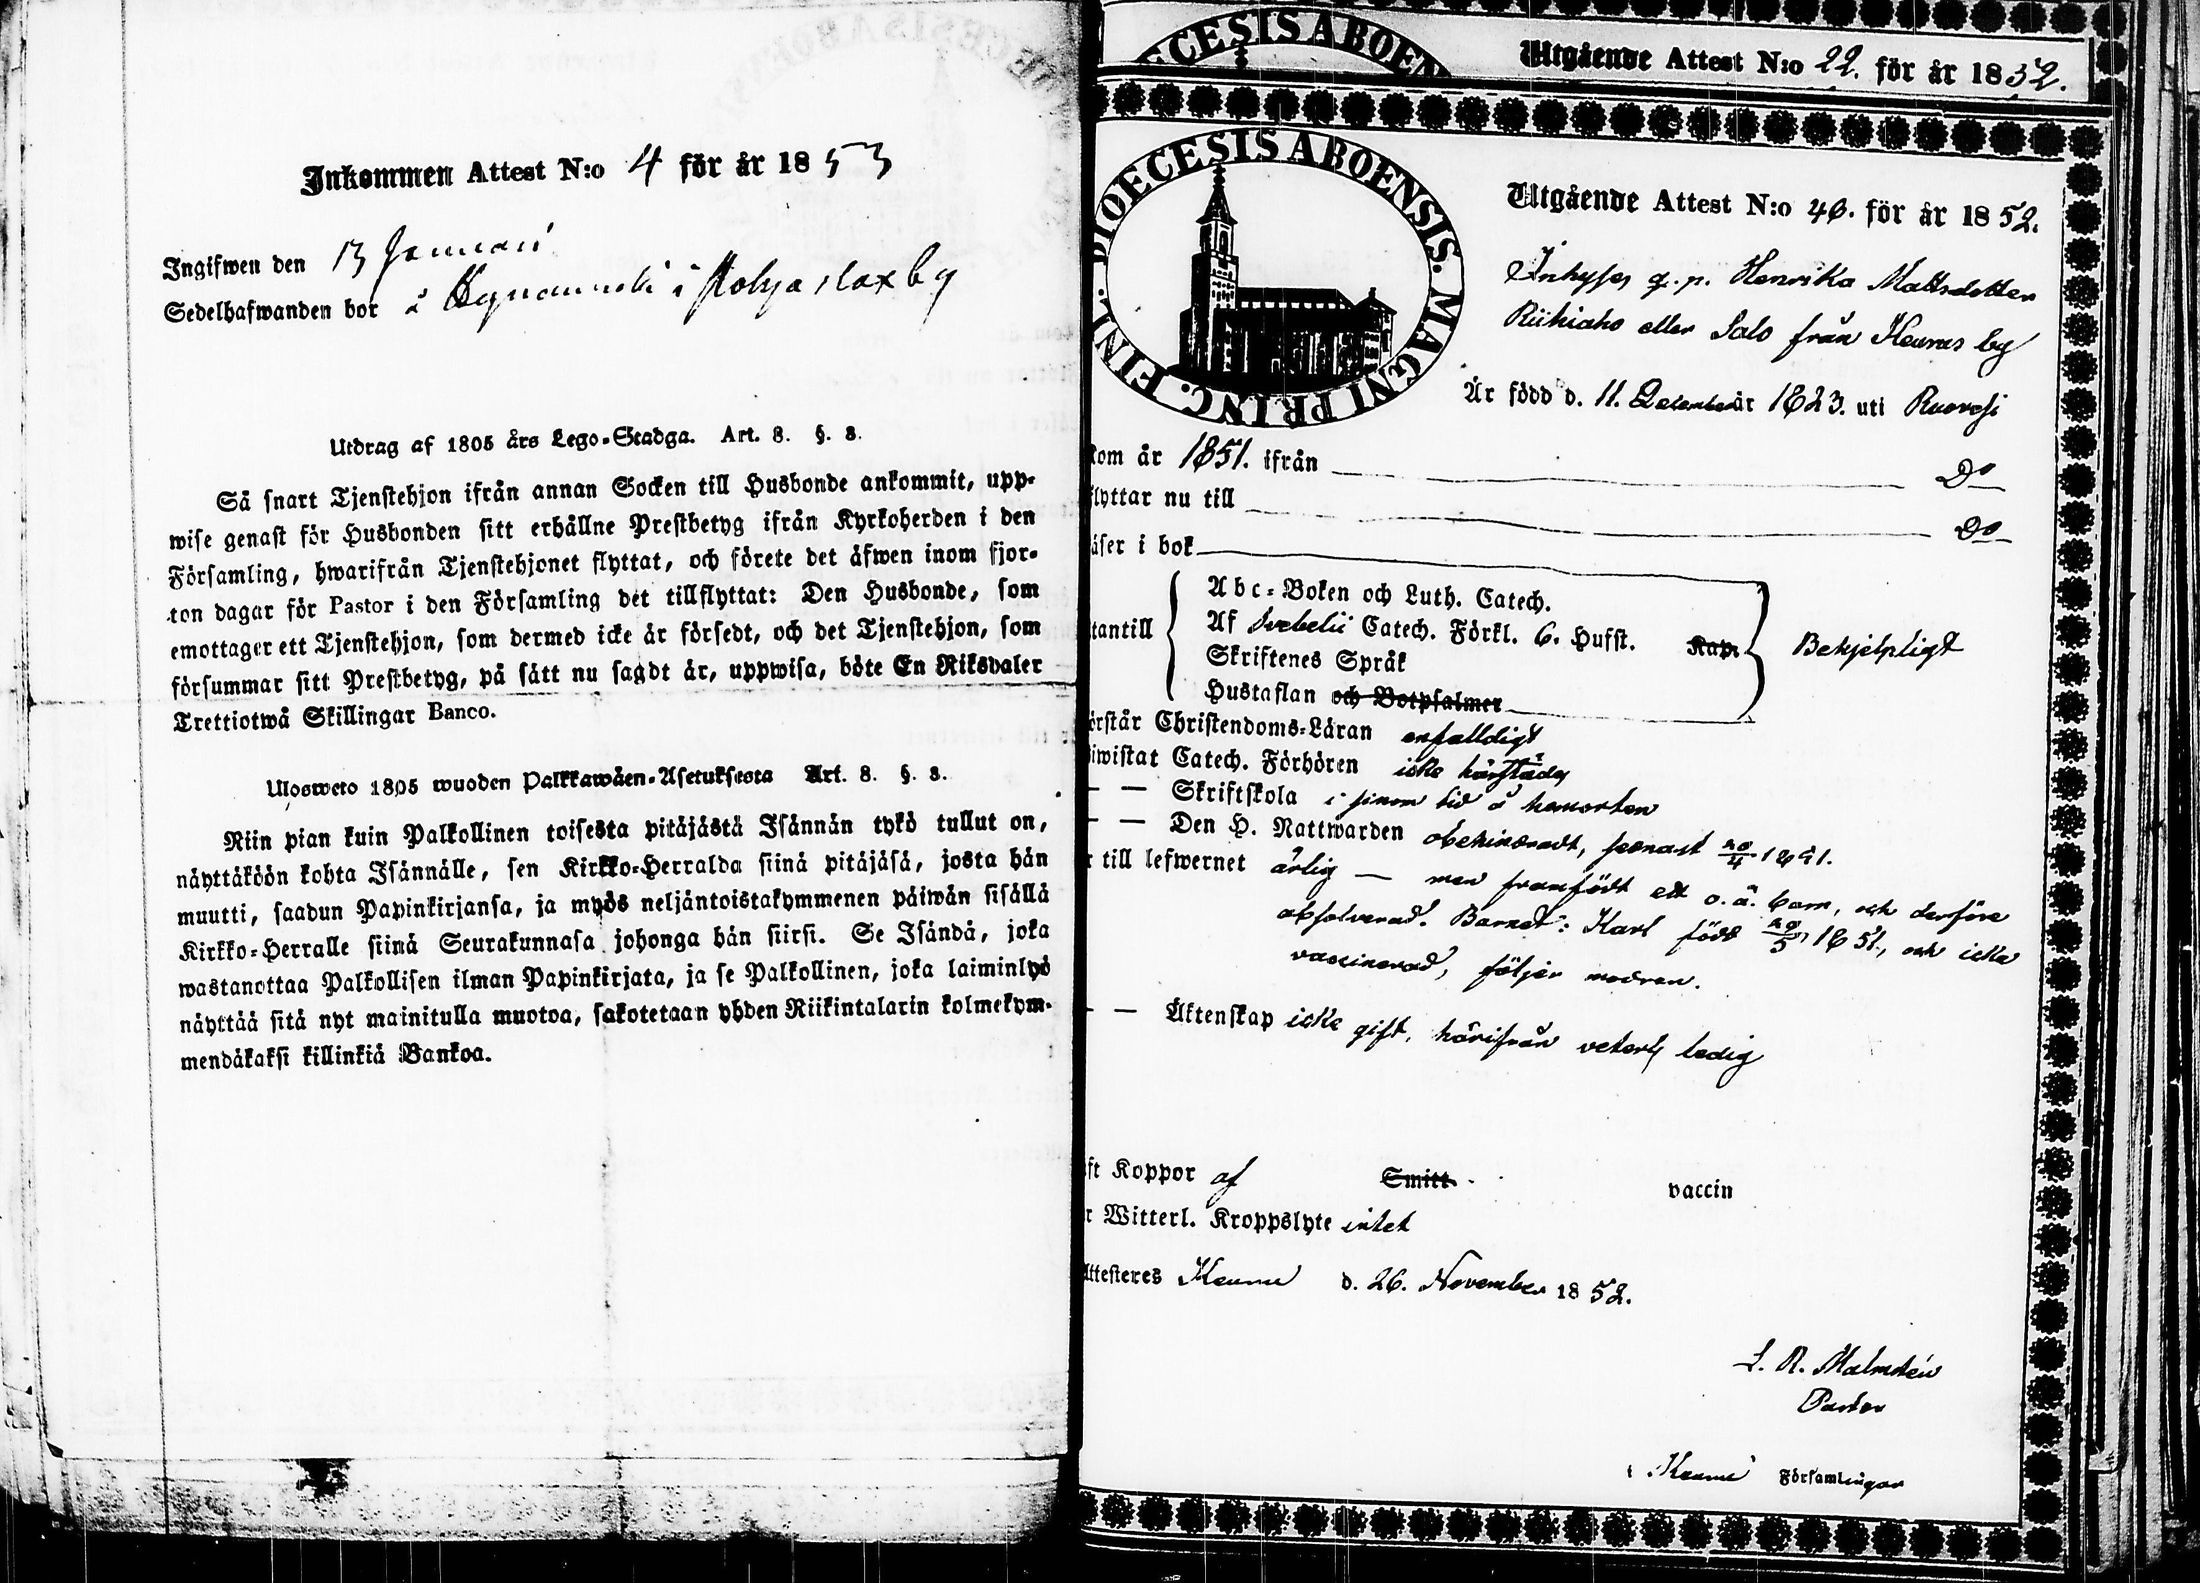 Inkommen Attest N:o 4 för år 1853
Ingifwen den 13 Januari
Sedelhafwanden bor i i Pohjaslax by
Utdrag af 1805 års Lego-Stadga. Art. 8. §. 8.
Så snart Tjenstehjon ifrån annan Socken till Husbonde ankommit, upp-
wise genast för Husbonden sitt erhållne Prestbetyg ifrån Kyrkoherden i den
Församling, hwarifrån Tjenstehjonet flyttat, och förete det äfwen inom fjor-
ton dagar för Pastor i den Församling det tillflyttat: Den Husbonde, som
emottager ett Tjenstehjon, som dermed icke är försedt, och det Tjenstehjon, som
försummar sitt Prestbetyg, på sätt nu sagdt är, uppwisa, böte En Riksdaler
Trettiotwå Skillingar Banco.
Ulosweto 1805 wuoden Palkkawäen-Asetuksesta Art. 8. §. 8.
Niin pian kuin Palkollinen toisesta pitäjästä Isännän tykö tullut on,
näyttäköön kohta Isännälle, sen Kirkko-Herralda siinä pitäjäsä, josta hän
muutti, saadun Papinkirjansa, ja myös neljäntoistakymmenen päiwän sisällä
Kirkko-Herralle siinä Seurakunnasa johonga hän siirsi. Se Isändä, joka
wastanottaa Palkollisen ilman Papinkirjata, ja se Palkollinen, joka laiminlyö
näyttää sitä nyt mainitulla muotoa, sakotetaan yhden Riikintalarin kolmekym-
mendäkaksi killinkiä Bankoa.
OECESIS ABOEN
Utgående Attest N:o 22. för år 1852.
DIOECESIS ABOENSIS. MAGNI PRINC. FINL.
Utgående Attest N:o 40. för år 1852.
Inhyses q. p. Henrika Mattsdotter
Riihiaho eller Salo från Keuru by
Är född d. 11. December år 1823. uti Ruovesi
kom år 1851. ifrån Do
flyttar nu till Do
äser i bok
tantill
Abc-Boken och Luth. Catech.
Af Svebelii Catech. Förkl. 6. Hufst. Kap.
Skriftenes Språk
Hustaflan och Botpsalmer
Behjelpligt
örstår Christendoms-Läran enfalldigt
iwistat Catech. Förhören icke härstädes
— — Skriftskola i sinom tid å hemorten
— — Den H. Nattwarden obehindradt, senast 20/4 1851.
r till lefwernet ärlig — men framfödt ett o. ä. barn, och derföre
absolverad. Barnet: Karl född 20/5 1851, och icke
vaccinerad, följer modren.
— — Äktenskap icke gift, härifrån veterl. ledig
ft Koppor af Smitt vaccin
r Witterl. Kroppslyte intet
Attesteres Keuru d. 26. November 1852.
L. R. Malmstén
Pastor
i Keuru Församlingar